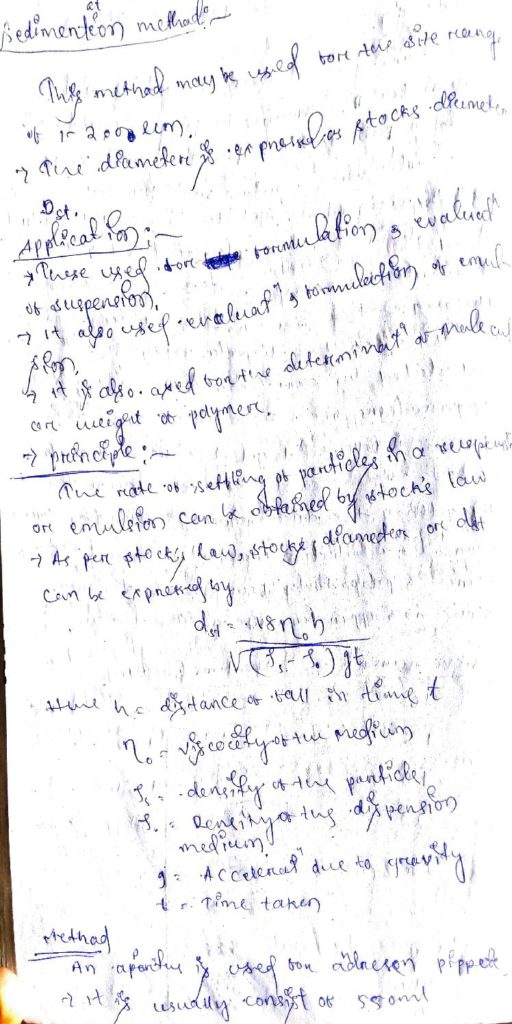 Sedimentation method:-
This method may be used for the size rang
of 1-200 um.
→ The diameter is expressed as stocks diamete
Dst.
Application:-
→ These used for formulation & evaluatⁿ
of suspension.
→ it also used evaluatⁿ & formulation of emul
sion.
→ it is also used for the determinatⁿ of molecul
are weight of polymer.
→ principle:-
The rate of settling of particles in a suspensi
or emulsion can be obtained by stock's law
→ As per stock's law, stock's diameter or dst
can be expressed by
dst = 18η₀h
√(ρs - ρ₀)gt
Here h = distance of fall in time t
η₀ = viscocity of the medium,
ρs = density of the particles,
ρ₀ = Density of the dispension
medium
g = Acceleratⁿ due to gravity
t = Time taken
Method
An aparitus is used for adresen pippet
→ it is usually consist of 550ml